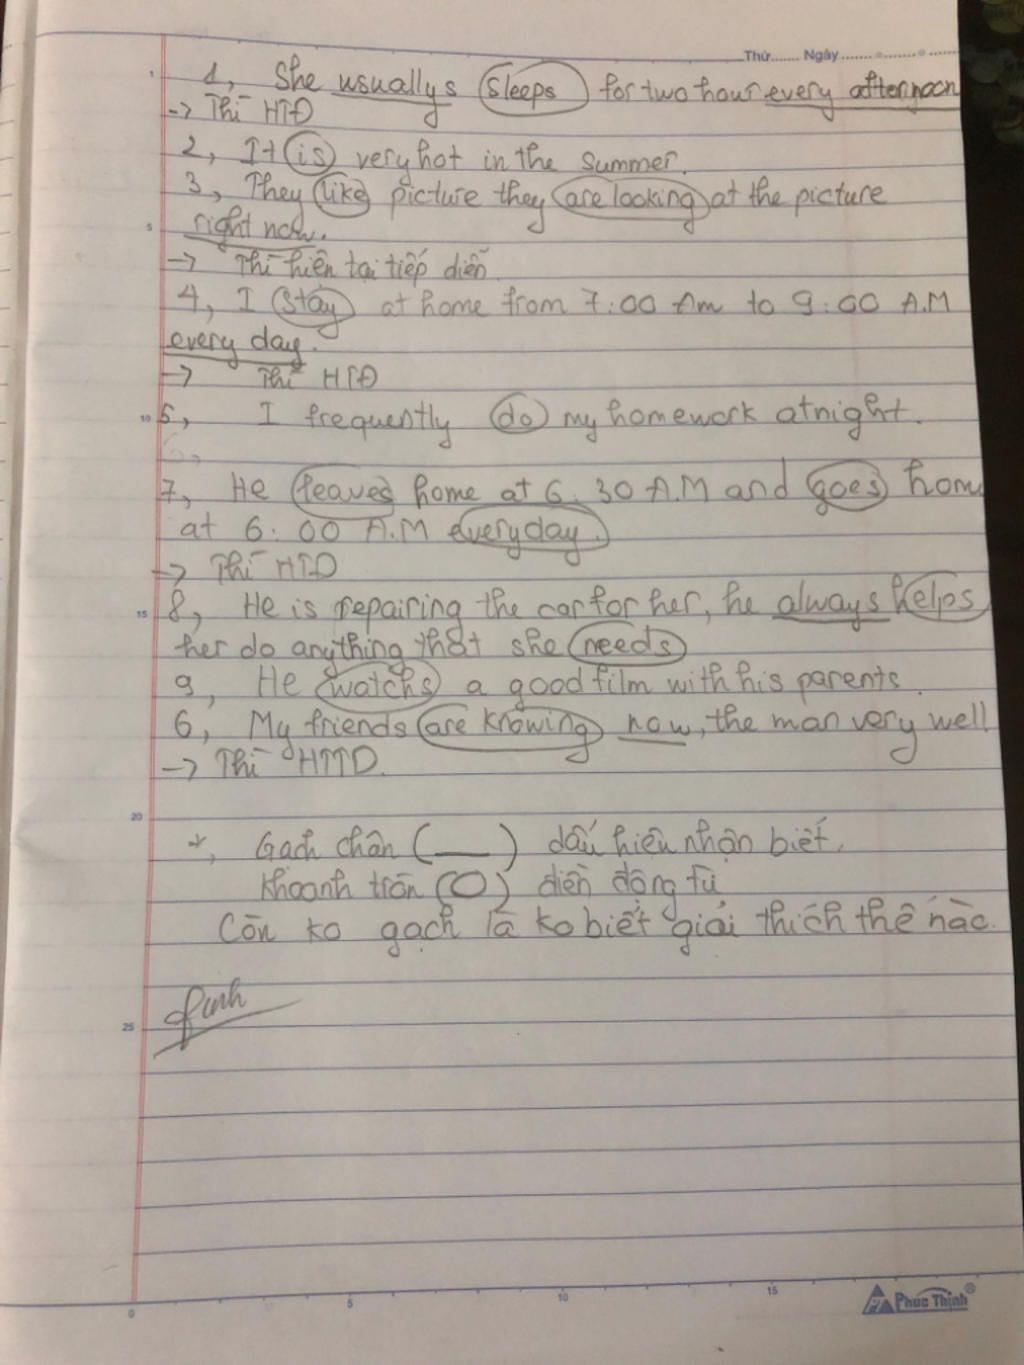 Thứ....... Ngày.......
1, She usually s sleeps for two hour every afternoon
-> Thì HTĐ
2, It is very hot in the summer.
3, They like picture they are looking at the picture
right now.
-> Thì hiện tại tiếp diễn
4, I stay at home from 7:00 Am to 9:00 A.M
every day.
-> Thì HTĐ
5, I frequently do my homework at night.
7, He leaves home at 6:30 A.M and goes hom
at 6:00 A.M everyday.
-> Thì HTĐ
8, He is repairing the car for her, he always helps
her do anything that she needs
9, He watchs a good film with his parents.
6, My friends are knowing now, the man very well
-> Thì HTTD.
*, Gạch chân (__) dấu hiệu nhận biết.
Khoanh tròn (O) điền động từ
Còn ko gạch là ko biết giải thích thế nào.
1
5
10
15
20
25
0 5 10 15
Phúc Thịnh®